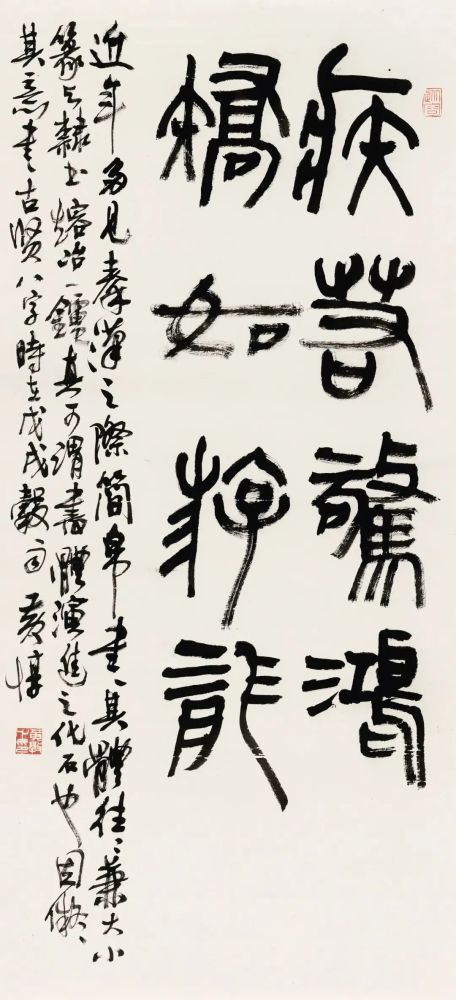 疾若驚鴻
矯如斿龍
近年多見秦漢之際簡帛書、其體往、兼大小
篆与隸书熔冶一鑪真可謂書體演進之化石也因儗、
其意書古賢八字時在戊戌穀雨 黃惇